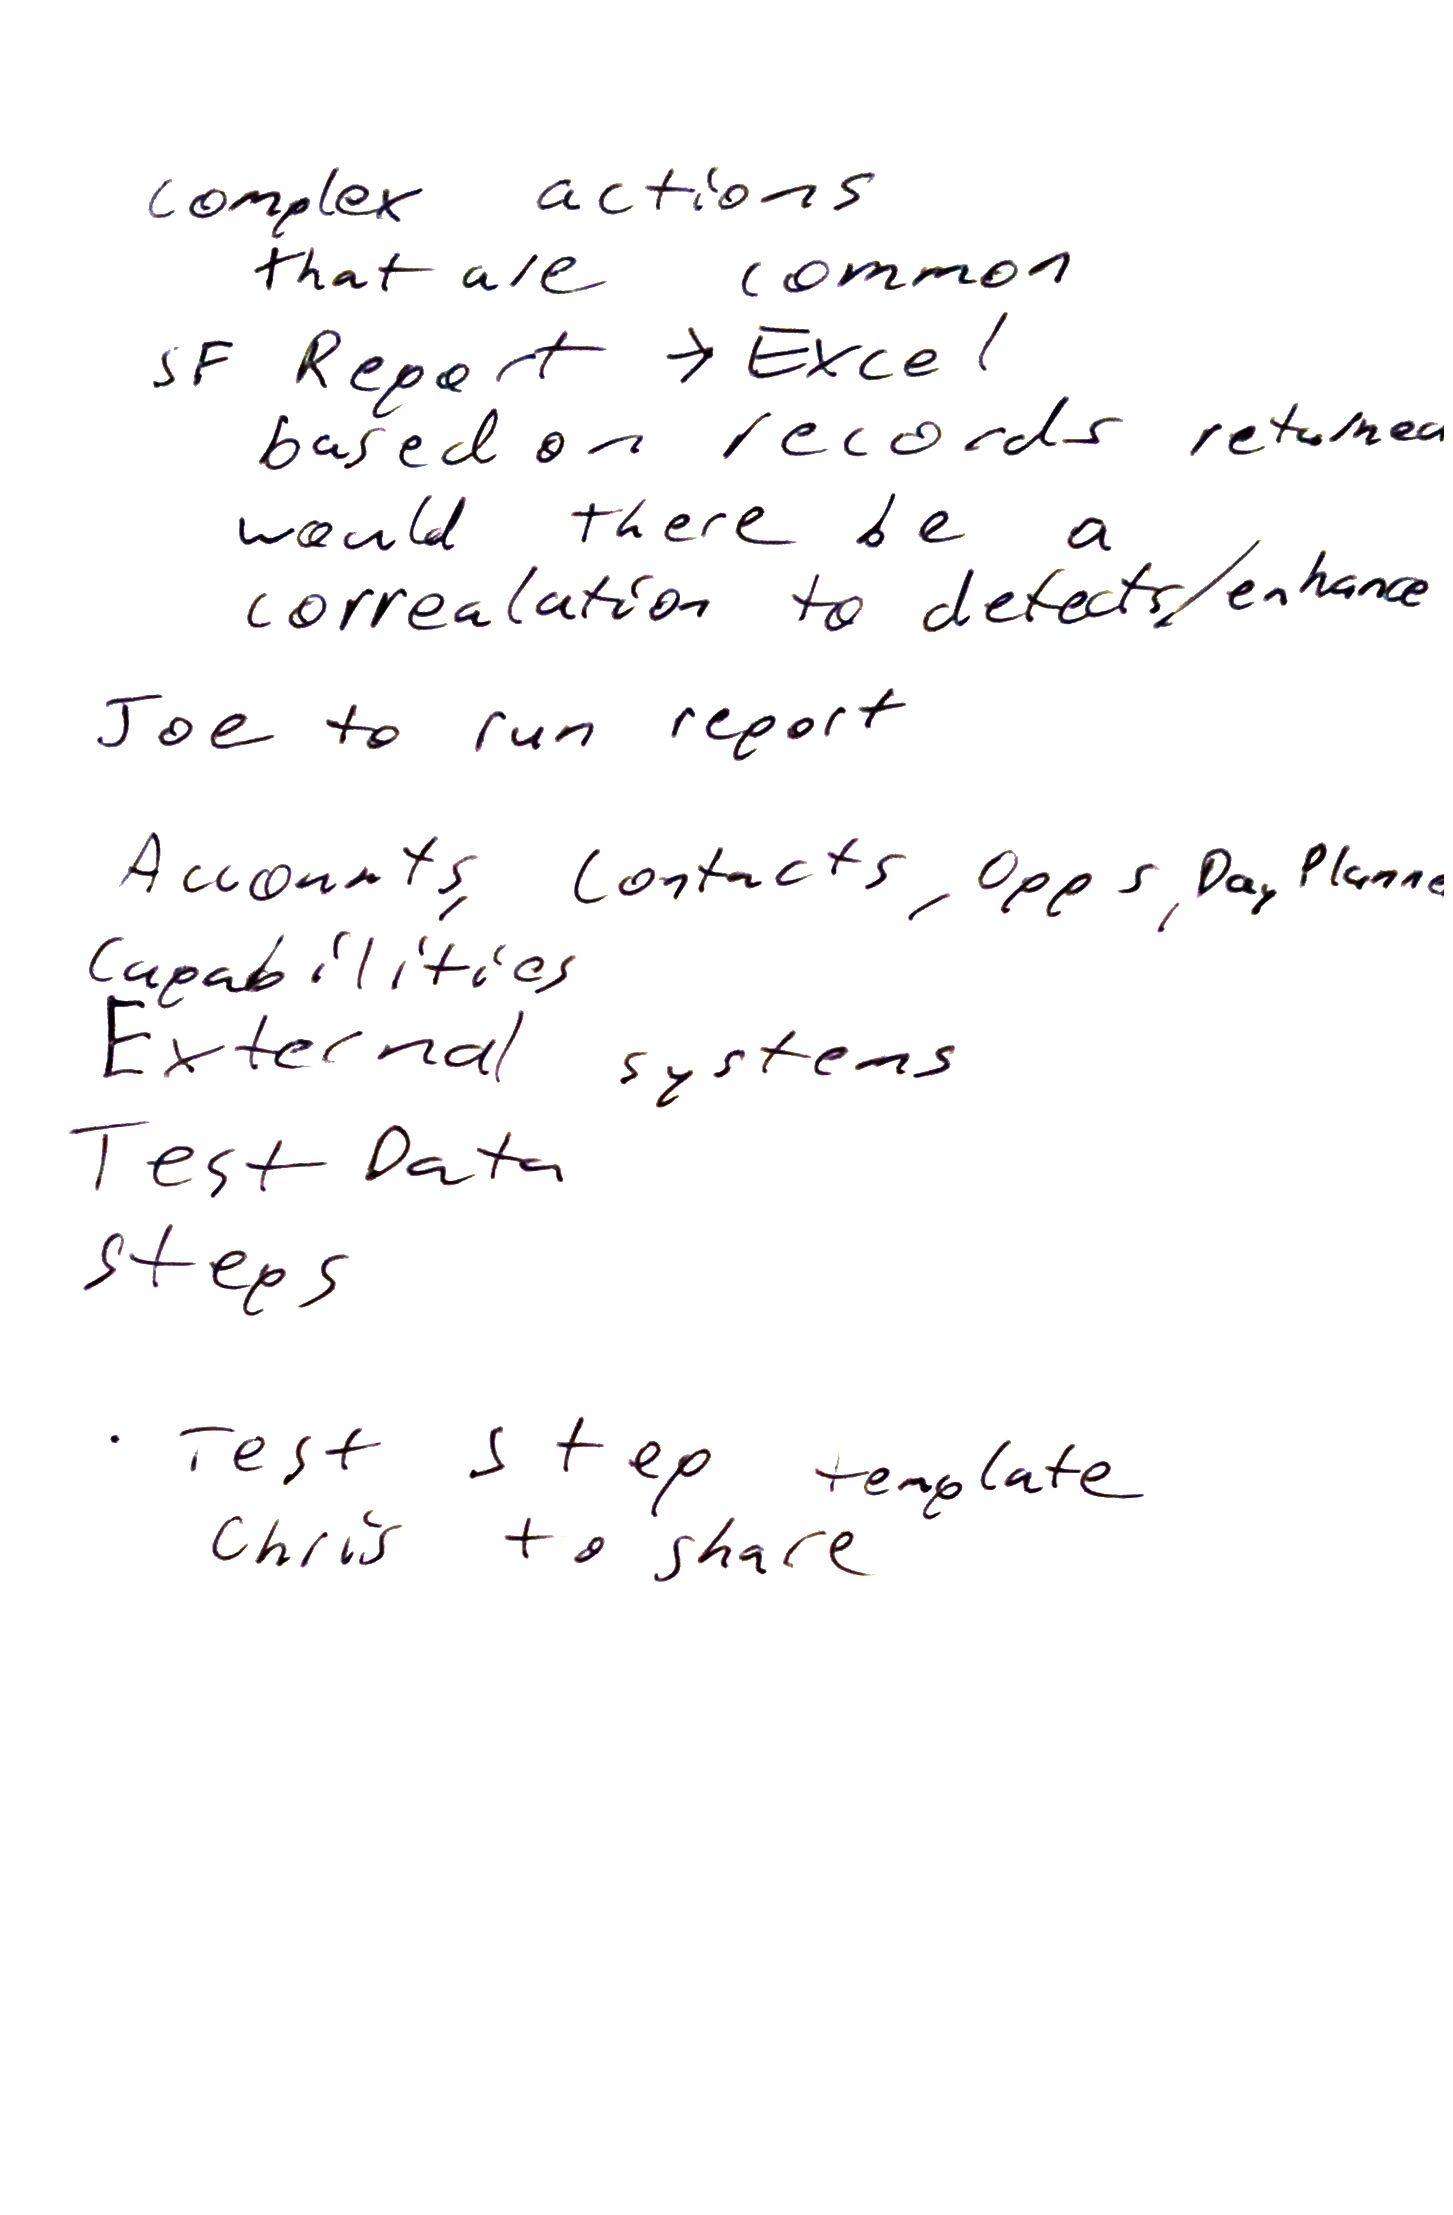 complex actions
that are common
SF Report → Excel
based on records returned
would there be a
correalation to defects/enhance
Joe to run report
Accounts, Contacts, Opps, Day Planne
Capabilities
External systems
Test Data
steps
· Test step template
Chris to share